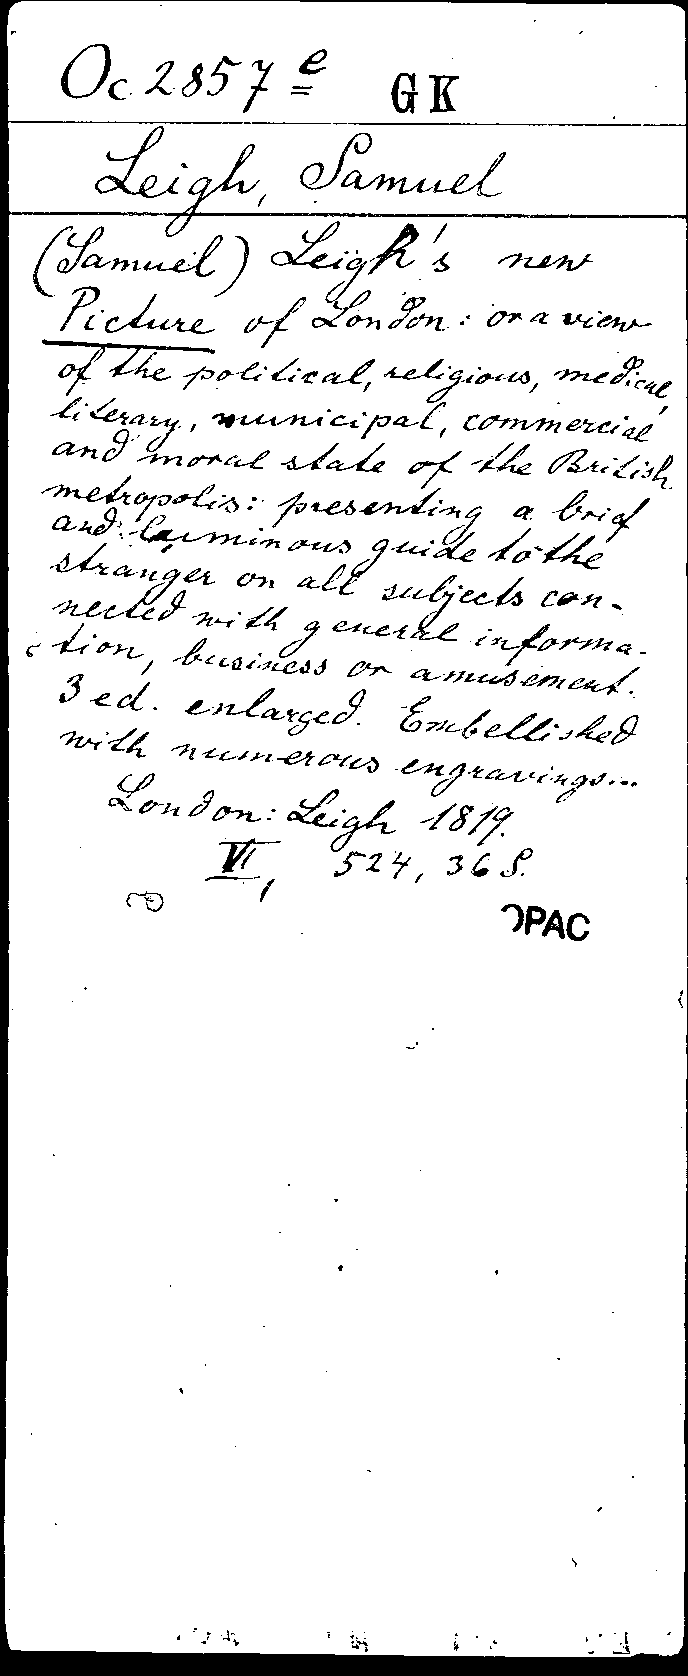 Oc 2857 e GK
Leigh, Samuel
(Samuel) Leigh's new
Picture of London: or a view
of the political, religious, medical,
literary, municipal, commercial
and moral state of the British
metropolis: presenting a brief
and luminous guide to the
stranger on all subjects con-
nected with general informa-
tion, business or amusement.
3 ed. enlarged. Embellished
with numerous engravings...
London: Leigh 1819.
VI, 524, 36 S.
OPAC